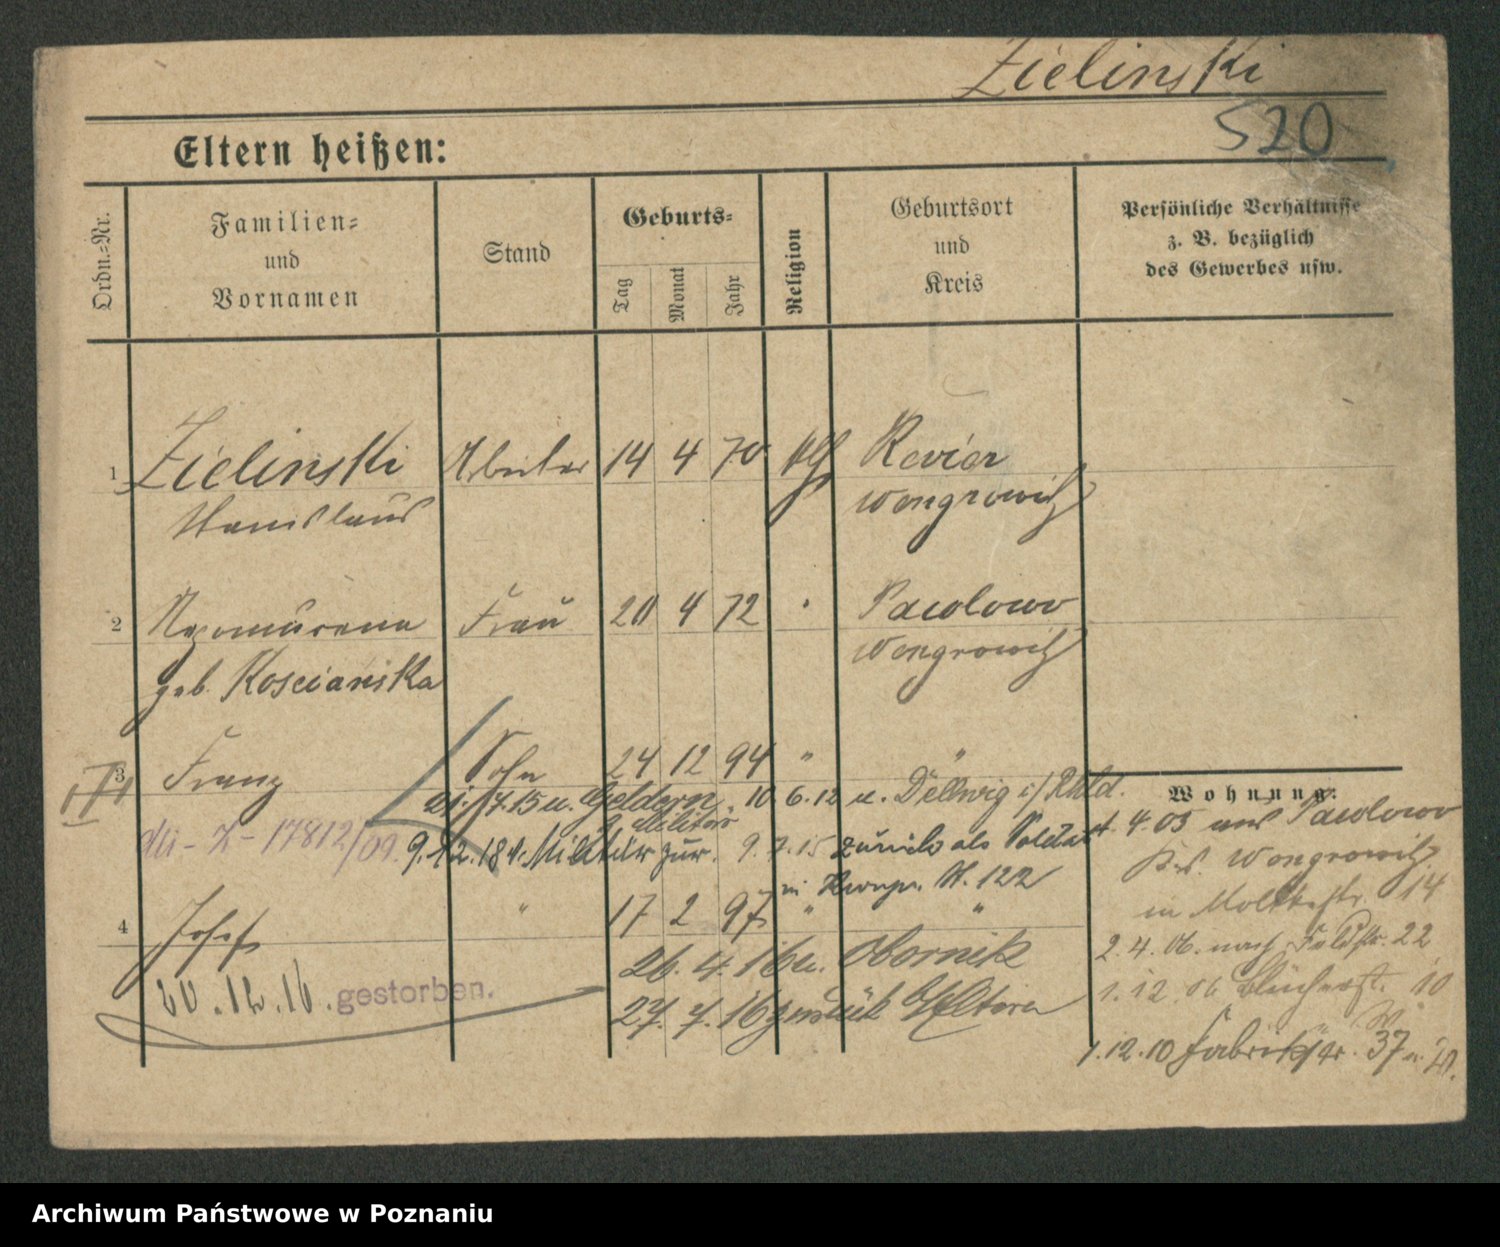 Zielinski
520
Eltern heißen:
Ordn.-Nr.
Familien-
und
Vornamen
Stand
Geburts-
Tag
Monat
Jahr
Religion
Geburtsort
und
Kreis
Persönliche Verhältnisse
z. B. bezüglich
des Gewerbes usw.
1 Zielinski Arbeiter 14 4 70 kth Revier
Stanislaus Wongrowitz
2 Nepomucena Frau 20 4 72 " Pawlowo
geb. Koscianska Wongrowitz
3 Franz Sohn 24 12 94 " "
III
7.15 u. Geldern 10 6. 12 u. Dellwig i/ Rhld.
Militär
Z - 17812/09. 9. 12. 18 v. Militär zur. 9. 7. 15 zurück als Soldat
in H. 122
4 Josef " 17 2 97 " "
26. 4. 16 u. Obornik
20. 12. 16. gestorben. 27. 7. 16 zurück Eltern
Wohnung:
1. 4. 05 aus Pawlowo
Krs. Wongrowitz
in Moltkestr. 14
2. 4. 06. nach Feldstr. 22
1. 12 06 Blücherst. 10
1. 12. 10 Fabrikstr. 37
Archiwum Państwowe w Poznaniu